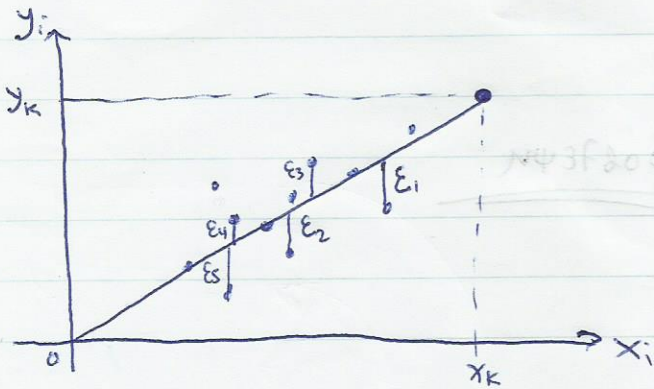 yi
yk
ε3
ε1
ε4
ε2
ε5
0
xk
xi